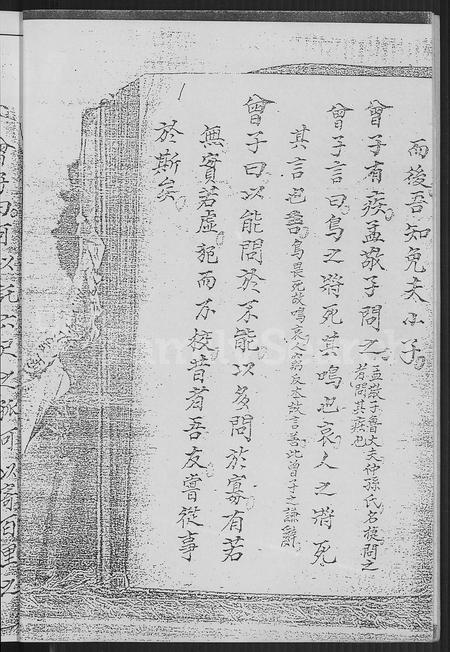 而後吾知免夫小子
曾子有疾孟敬子問之孟敬子魯大夫仲孫氏名捷問之
者問其疾也
曾子言曰鳥之將死其鳴也哀人之將死
其言也善鳥畏死故鳴哀人窮反本故言善此曾子之謙辭
曾子曰以能問於不能以多問於寡有若
無實若虛犯而不校昔者吾友嘗從事
於斯矣
曾子曰可以託六尺之孤可以寄百里之